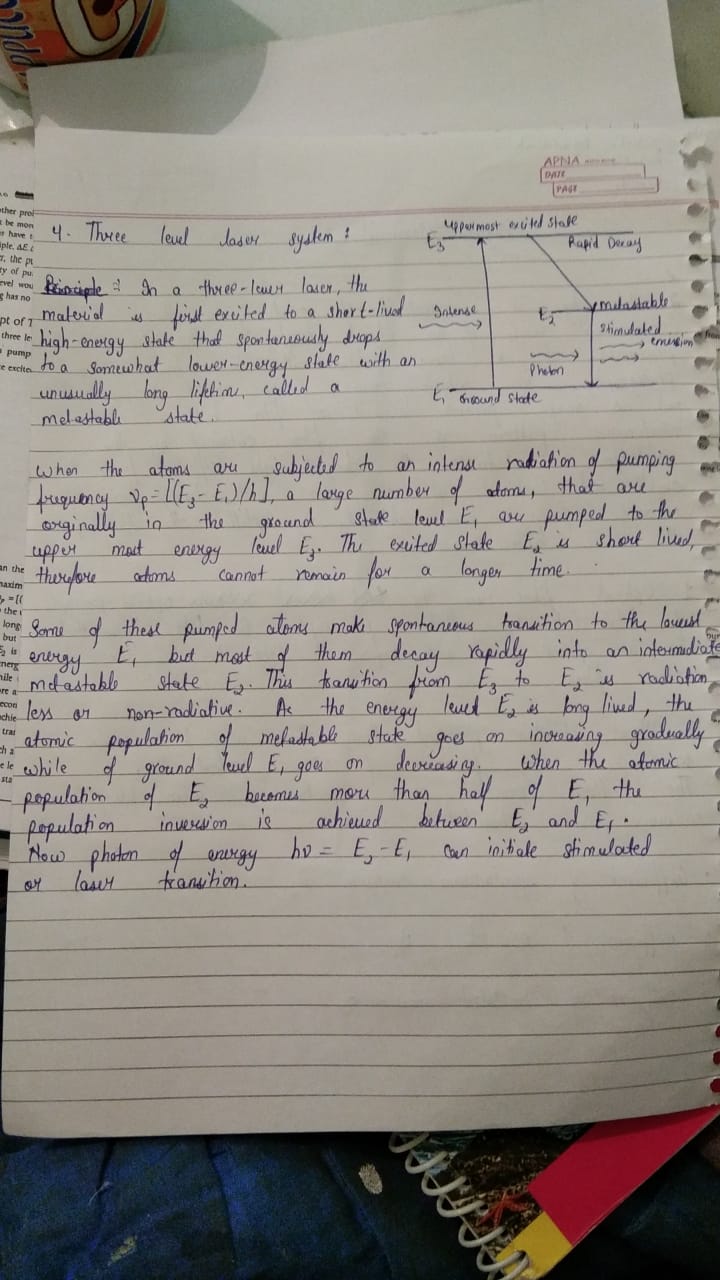 APNA
DATE
PAGE
4. Three level laser system :
Uppermost excited state
E3
Rapid Decay
Intense
E2
metastable
Stimulated
emission
Photon
E1 Ground State
Principle : In a three-lever laser, the
material is first excited to a short-lived
high-energy state that spontaneously drops
to a somewhat lower-energy state with an
unusually long lifetime, called a
metastable state.
When the atoms are subjected to an intense radiation of pumping
frequency νp = [(E3 - E1)/h], a large number of atoms, that are
orginally in the ground state level E1 are pumped to the
upper most energy level E3. The excited state E3 is short lived,
therefore atoms cannot remain for a longer time.
Some of these pumped atoms make spontaneous transition to the lowest
energy E1 but most of them decay rapidly into an intermediate
metastable state E2. This transition from E3 to E2 is radiation
less or non-radiative. As the energy level E2 is long lived, the
atomic population of metastable state goes on increasing gradually
while of ground level E1 goes on decreasing. When the atomic
population of E2 becomes more than half of E1 the
population inversion is achieved between E2 and E1.
Now photon of energy hν = E2 - E1 can initiate stimulated
or laser transition.